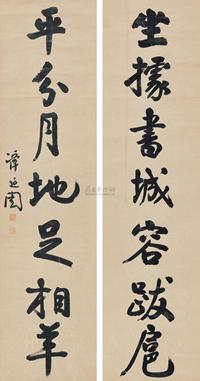 坐擁書城容跋扈
平分月地足相羊
譚延闓